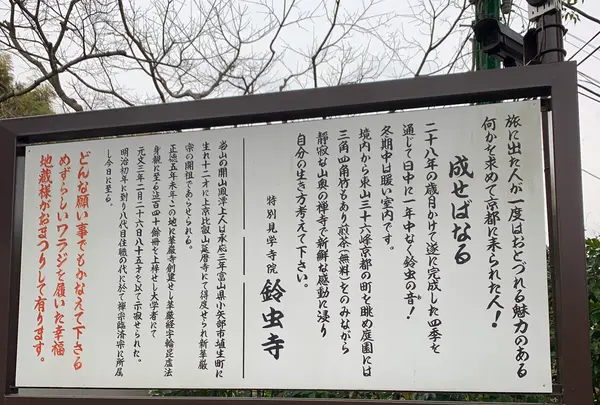 旅に出た人が一度はおとづれる魅力のある
何かを求めて京都に来られた人！
成せばなる
二十八年の歳月かけて遂に完成した四季を
通じて一日中に一年中なく鈴虫の音！
冬期中は暖い室内です。
境内から東山三十六峰京都の町を眺め庭園には
三角四角竹もあり煎茶（無料）をのみながら
静寂な山奥の禅寺で新鮮な感動に浸り
自分の生き方考えて下さい。
特別見学寺院 鈴虫寺
当山の開山鳳潭上人は承応三年富山県小矢部市埴生町に
生れ十二才に上京比叡山延暦寺にて得度せられ新華厳
宗の開祖であらせられる。
正徳五年末この地に華厳寺創建せし華厳経宇輪毘盧法
身観に至る迄百四十餘冊を上梓せし大学者にて
元文三年二月二十六日八十五才を以て示寂せられた。
明治初年に到り八代目住職の代に於て禅宗臨済宗に所属
し今日に至る。
どんな願い事でもかなえて下さる
めずらしいワラジを履いた幸福
地蔵様がおまつりして有ります。